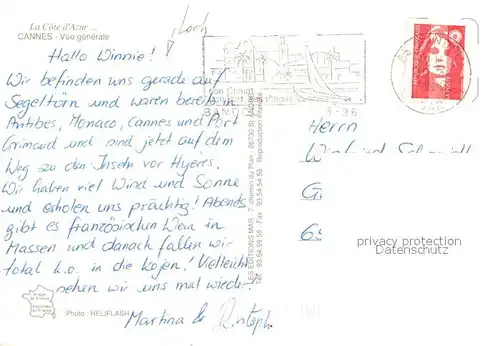 La Côte d'Azur ...
CANNES - Vue générale
Loch
Hallo Winnie!
Wir befinden uns gerade auf
Segeltörn und waren bereits in
Antibes, Monaco, Cannes und Port
Grimaud und sind jetzt auf dem
Weg zu den Inseln vor Hyères.
Wir haben viel Wind und Sonne
und erholen uns prächtig! Abends
gibt es französischen Wein in
Massen und danach fallen wir
total k.o. in die Kojen! Vielleicht
sehen wir uns mal wieder!
Martina &
Photo : HELIFLASH
LES EDITIONS MAR, 7, chemin du Plan - 06730 St. André
Tél. 93.54.59.59 - Fax. 93.54.54.58 Reproduction interdite
son Climat
BANDOL
5-96
REPUBLIQUE FRANÇAISE
Herrn
privacy protection
Datenschutz